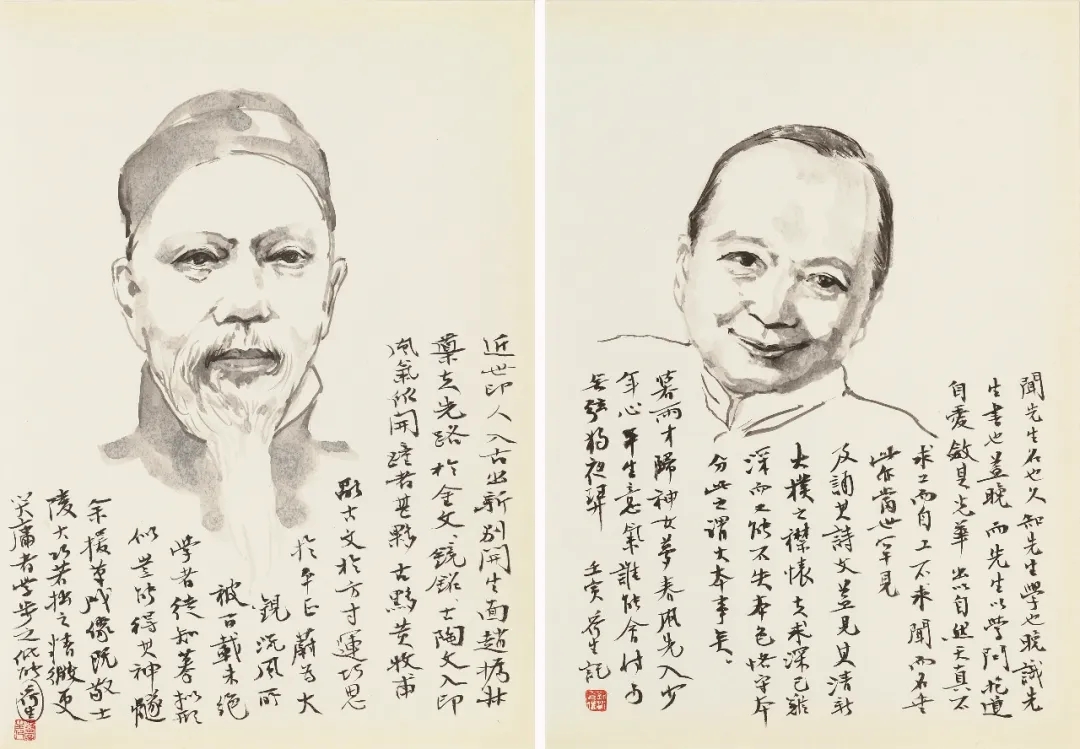 近世印人入古出新别開生面趙撝叔
導夫先路於金文、鏡銘、古陶文入印
風氣既開踵者甚夥古黟黄牧甫
融古文於方寸運巧思
於平正蔚為大
觀流風所
被百載未絕
學者徒知摹拟形
似豈能得其神髓
余援筆成像既敬士
陵大巧若拙之精微更
笑庸者學步之低能荷生
聞先生名也久知先生學也晚識先
生書也益晚而先生以學問抱道
自愛斂其光華出以自然天真不
求工而自工不求聞而名垂
當世罕見
及誦其詩文益見其清新
大樸之襟懷夫求深已難
深而又能不失本色恪守本
分此之謂大本事矣。
暮雨才歸神女夢春風先入少
年心平生意氣誰能會付與
無弦獨夜琴 壬寅荷生記